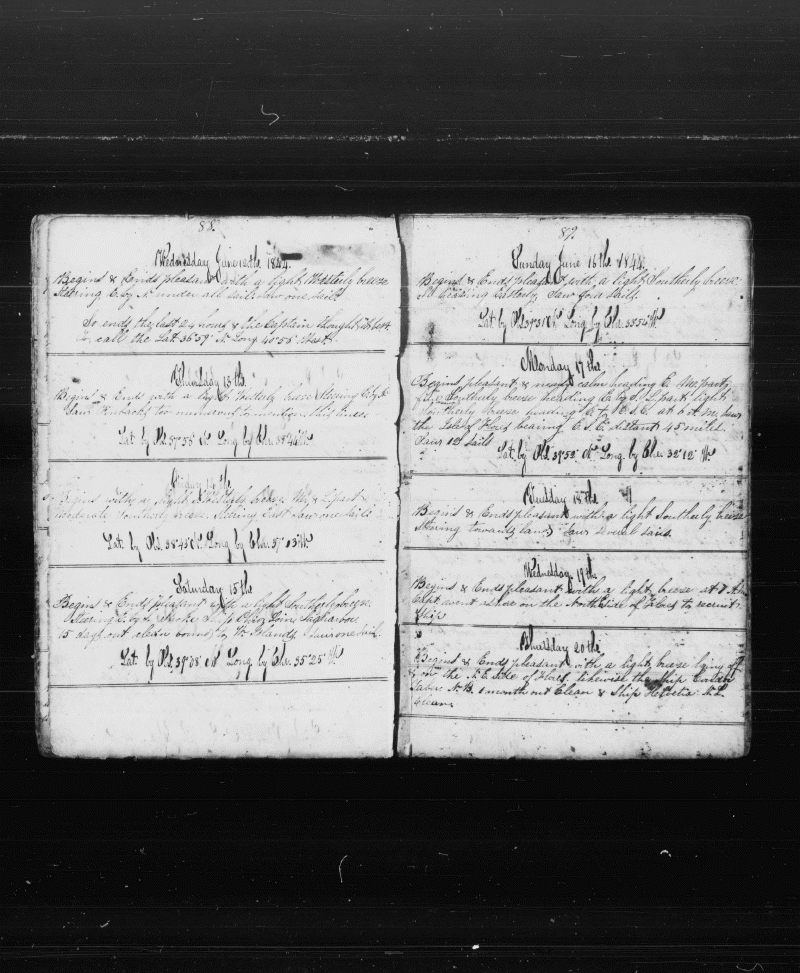 88.
Wednesday June 12th 1844.
Begins & Ends pleasant with a light Westerly breeze
Steering E by N under all sail saw one sail
So ends the last 24 hours & the Captain thought it best
to call the Latt 36°59' N Long 40°55' West.
Thursday 13th
Begins & Ends with a light Westerly breeze Steering E by N
Saw
to numerous to mention this time
Lat. by Ob. 37°55' N Long by Chr. 38°44 W
Friday 14th
Begins with a light Westerly breeze Mid & L part
Moderate Southerly breeze Steering East Saw one Sail
Lat. by Ob. 38°45 N Long by Chr. 37°03 W
Saturday 15th
Begins & Ends pleasant with a light Southerly breeze.
Steering E by S Spoke Ship
Sagharbor
15 days out clean bound to W Islands Saw one Sail.
Lat. by Ob. 39°08' N Long. by Chr. 35°25' W
89.
Sunday June 16th 1844.
Begins & Ends pleasant with a light Southerly breeze.
Saw four Sails.
Lat by Ob. 39°51 N Long by Chr. 33°54 W
Monday 17th
Begins pleasant & nearly calm heading E Mid part
fine Southerly breeze heading E by S. L part light
Southerly breeze heading E to E.S.E. at 6 A.M. saw
the Isle of Flores bearing E.S.E. distant 45 miles.
Saw 12 Sails
Lat. by Ob. 39°52' N Long. by Chr. 32°12' W
Tuesday 18th
Begins & Ends pleasant with a light Southerly breeze
Steering towards land Saw several sails.
Wednesday 19th
Begins & Ends pleasant with a light breeze at 7 A.M.
Capt went ashore on the North Side of Flores to recruit
Ship
Thursday 20th
Begins & Ends pleasant with a light breeze lying off
& on the N.E. side of Flores, likewise the Ship
Taber N.B. 1 month out Clean & Ship Helvetia N.L.
Clean.